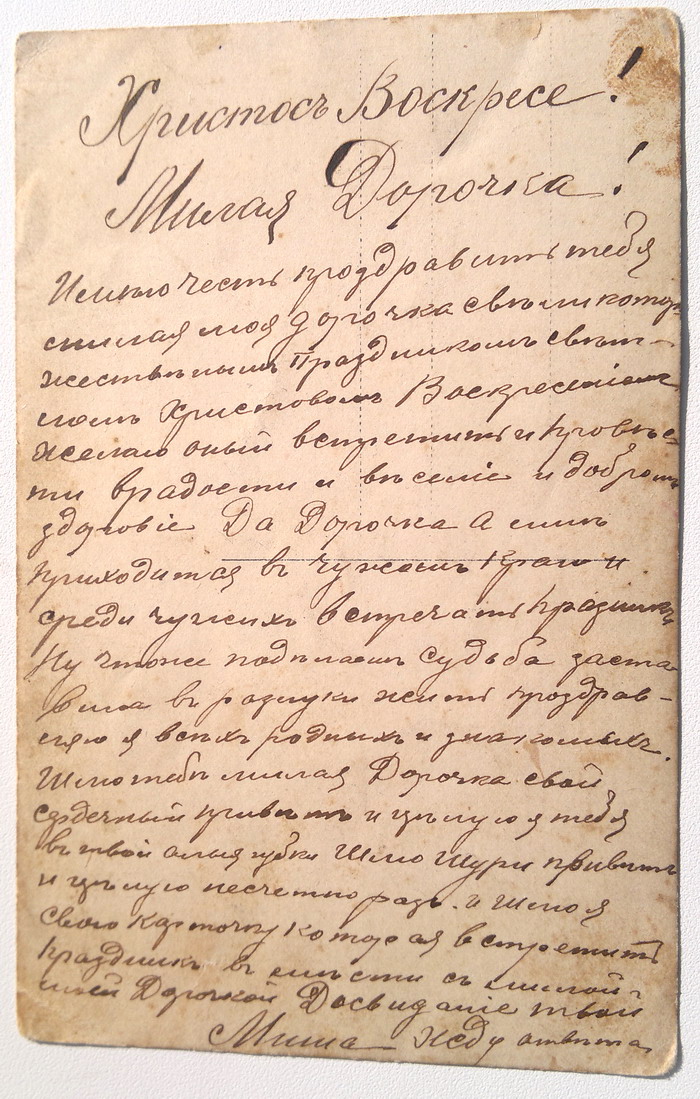 Христосъ Воскресе!
Милая Дорочка!
Имѣю честь проздравить тебя
милая моя дорочка
Праздникомъ свѣт-
лымъ Христовымъ Воскресеніемъ
желаю оный встретить и провѣс-
ти врадости и вѣселіе и добромъ
здоровіе Да Дорочка А мнѣ
приходится въ чужомъ краю и
среди чужихъ встречать праздникъ
Ну чтоже судьба заста-
вила въ разлуки жить проздрав-
ляю я всѣхъ родныхъ и знакомыхъ.
Шлю тебѣ милая Дорочка свой
сердечный привѣтъ и цѣлую я тебя
въ твои алыя губки Шлю Шури привѣтъ
и цѣлую несчетно разъ. и Шлю я
свою карточку которая встретитъ
праздникъ въ мѣсти съ милой
моей Дорочкой Досвиданіе твой
Миша Жду отвѣта